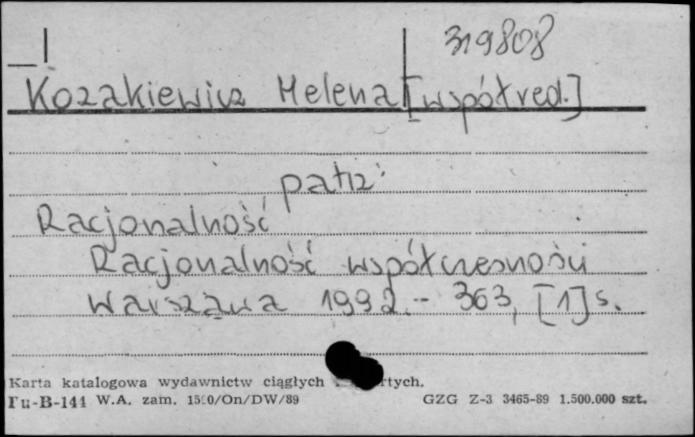 319808
Kozakiewicz Helena [współred.]
patrz:
Racjonalność
Racjonalność współczesności
Warszawa 1992. - 363, [1] s.
Karta katalogowa wydawnictw ciągłych
Pu-B-141 W.A. zam. /On/DW/89 GZG Z-3 3465-89 1.500.000 szt.